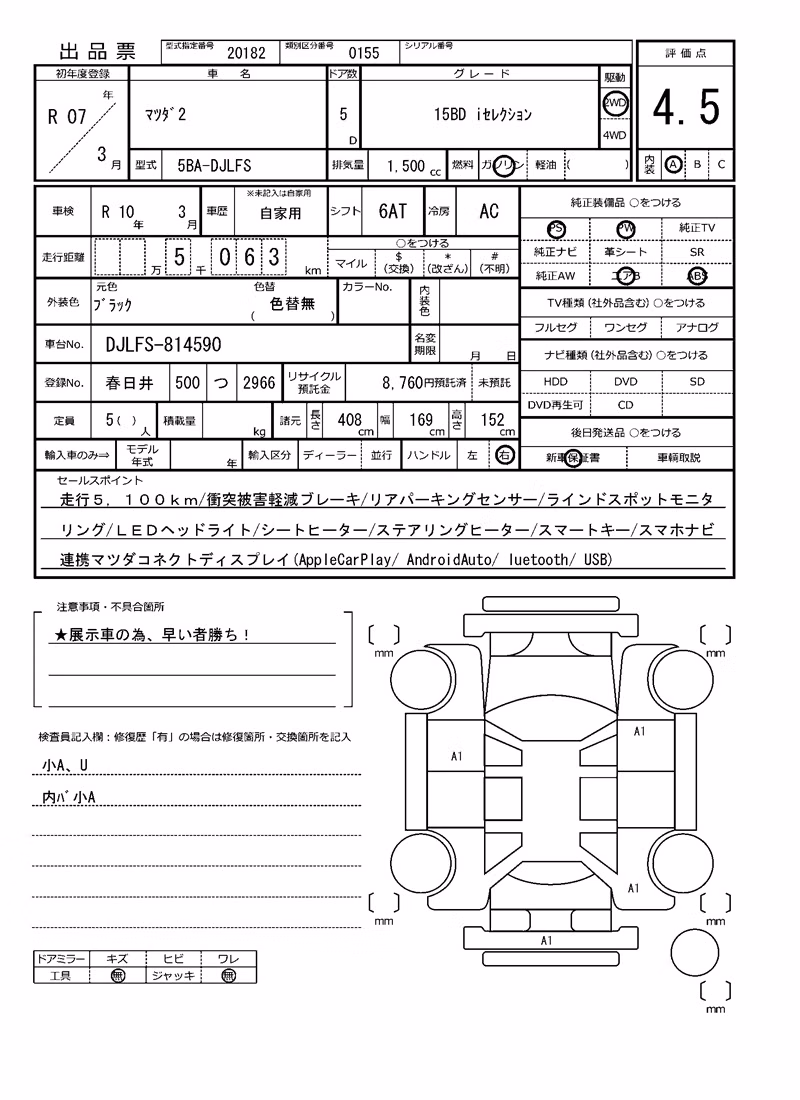 出品票 型式指定番号 20182 類別区分番号 0155 シリアル番号
初年度登録 車名 ドア数 グレード 駆動 評価点
R 07 年 3 月 マツダ2 5 D 15BD iセレクション 2WD 4WD 4.5
型式 5BA-DJLFS 排気量 1,500 cc 燃料 ガソリン 軽油 ( ) 内装 A B C
車検 R 10 年 3 月 車歴 ※未記入は自家用 自家用 シフト 6AT 冷房 AC
純正装備品 ○をつける
PS PW 純正TV
走行距離 万 5 千 0 6 3 km ○をつける
マイル $ (交換) * (改ざん) # (不明)
純正ナビ 革シート SR
純正AW エアB ABS
外装色 元色 ブラック 色替 ( 色替無 ) カラーNo. 内装色
TV種類 (社外品含む) ○をつける
フルセグ ワンセグ アナログ
車台No. DJLFS-814590 名変期限 月 日
ナビ種類 (社外品含む) ○をつける
HDD DVD SD
DVD再生可 CD
登録No. 春日井 500 つ 2966 リサイクル預託金 8,760円預託済 未預託
定員 5( ) 人 積載量 kg 諸元 長さ 408 cm 幅 169 cm 高さ 152 cm
後日発送品 ○をつける
新車保証書 車輌取説
輸入車のみ⇒ モデル年式 年 輸入区分 ディーラー 並行 ハンドル 左 右
セールスポイント
走行5,100km/衝突被害軽減ブレーキ/リアパーキングセンサー/ラインドスポットモニタ
リング/LEDヘッドライト/シートヒーター/ステアリングヒーター/スマートキー/スマホナビ
連携マツダコネクトディスプレイ(AppleCarPlay/ AndroidAuto/ luetooth/ USB)
注意事項・不具合箇所
★展示車の為、早い者勝ち!
検査員記入欄:修復歴「有」の場合は修復箇所・交換箇所を記入
小A、U
内バ小A
ドアミラー キズ ヒビ ワレ
工具 無 ジャッキ 無
mm mm
A1
A1
A1
mm mm
A1
mm